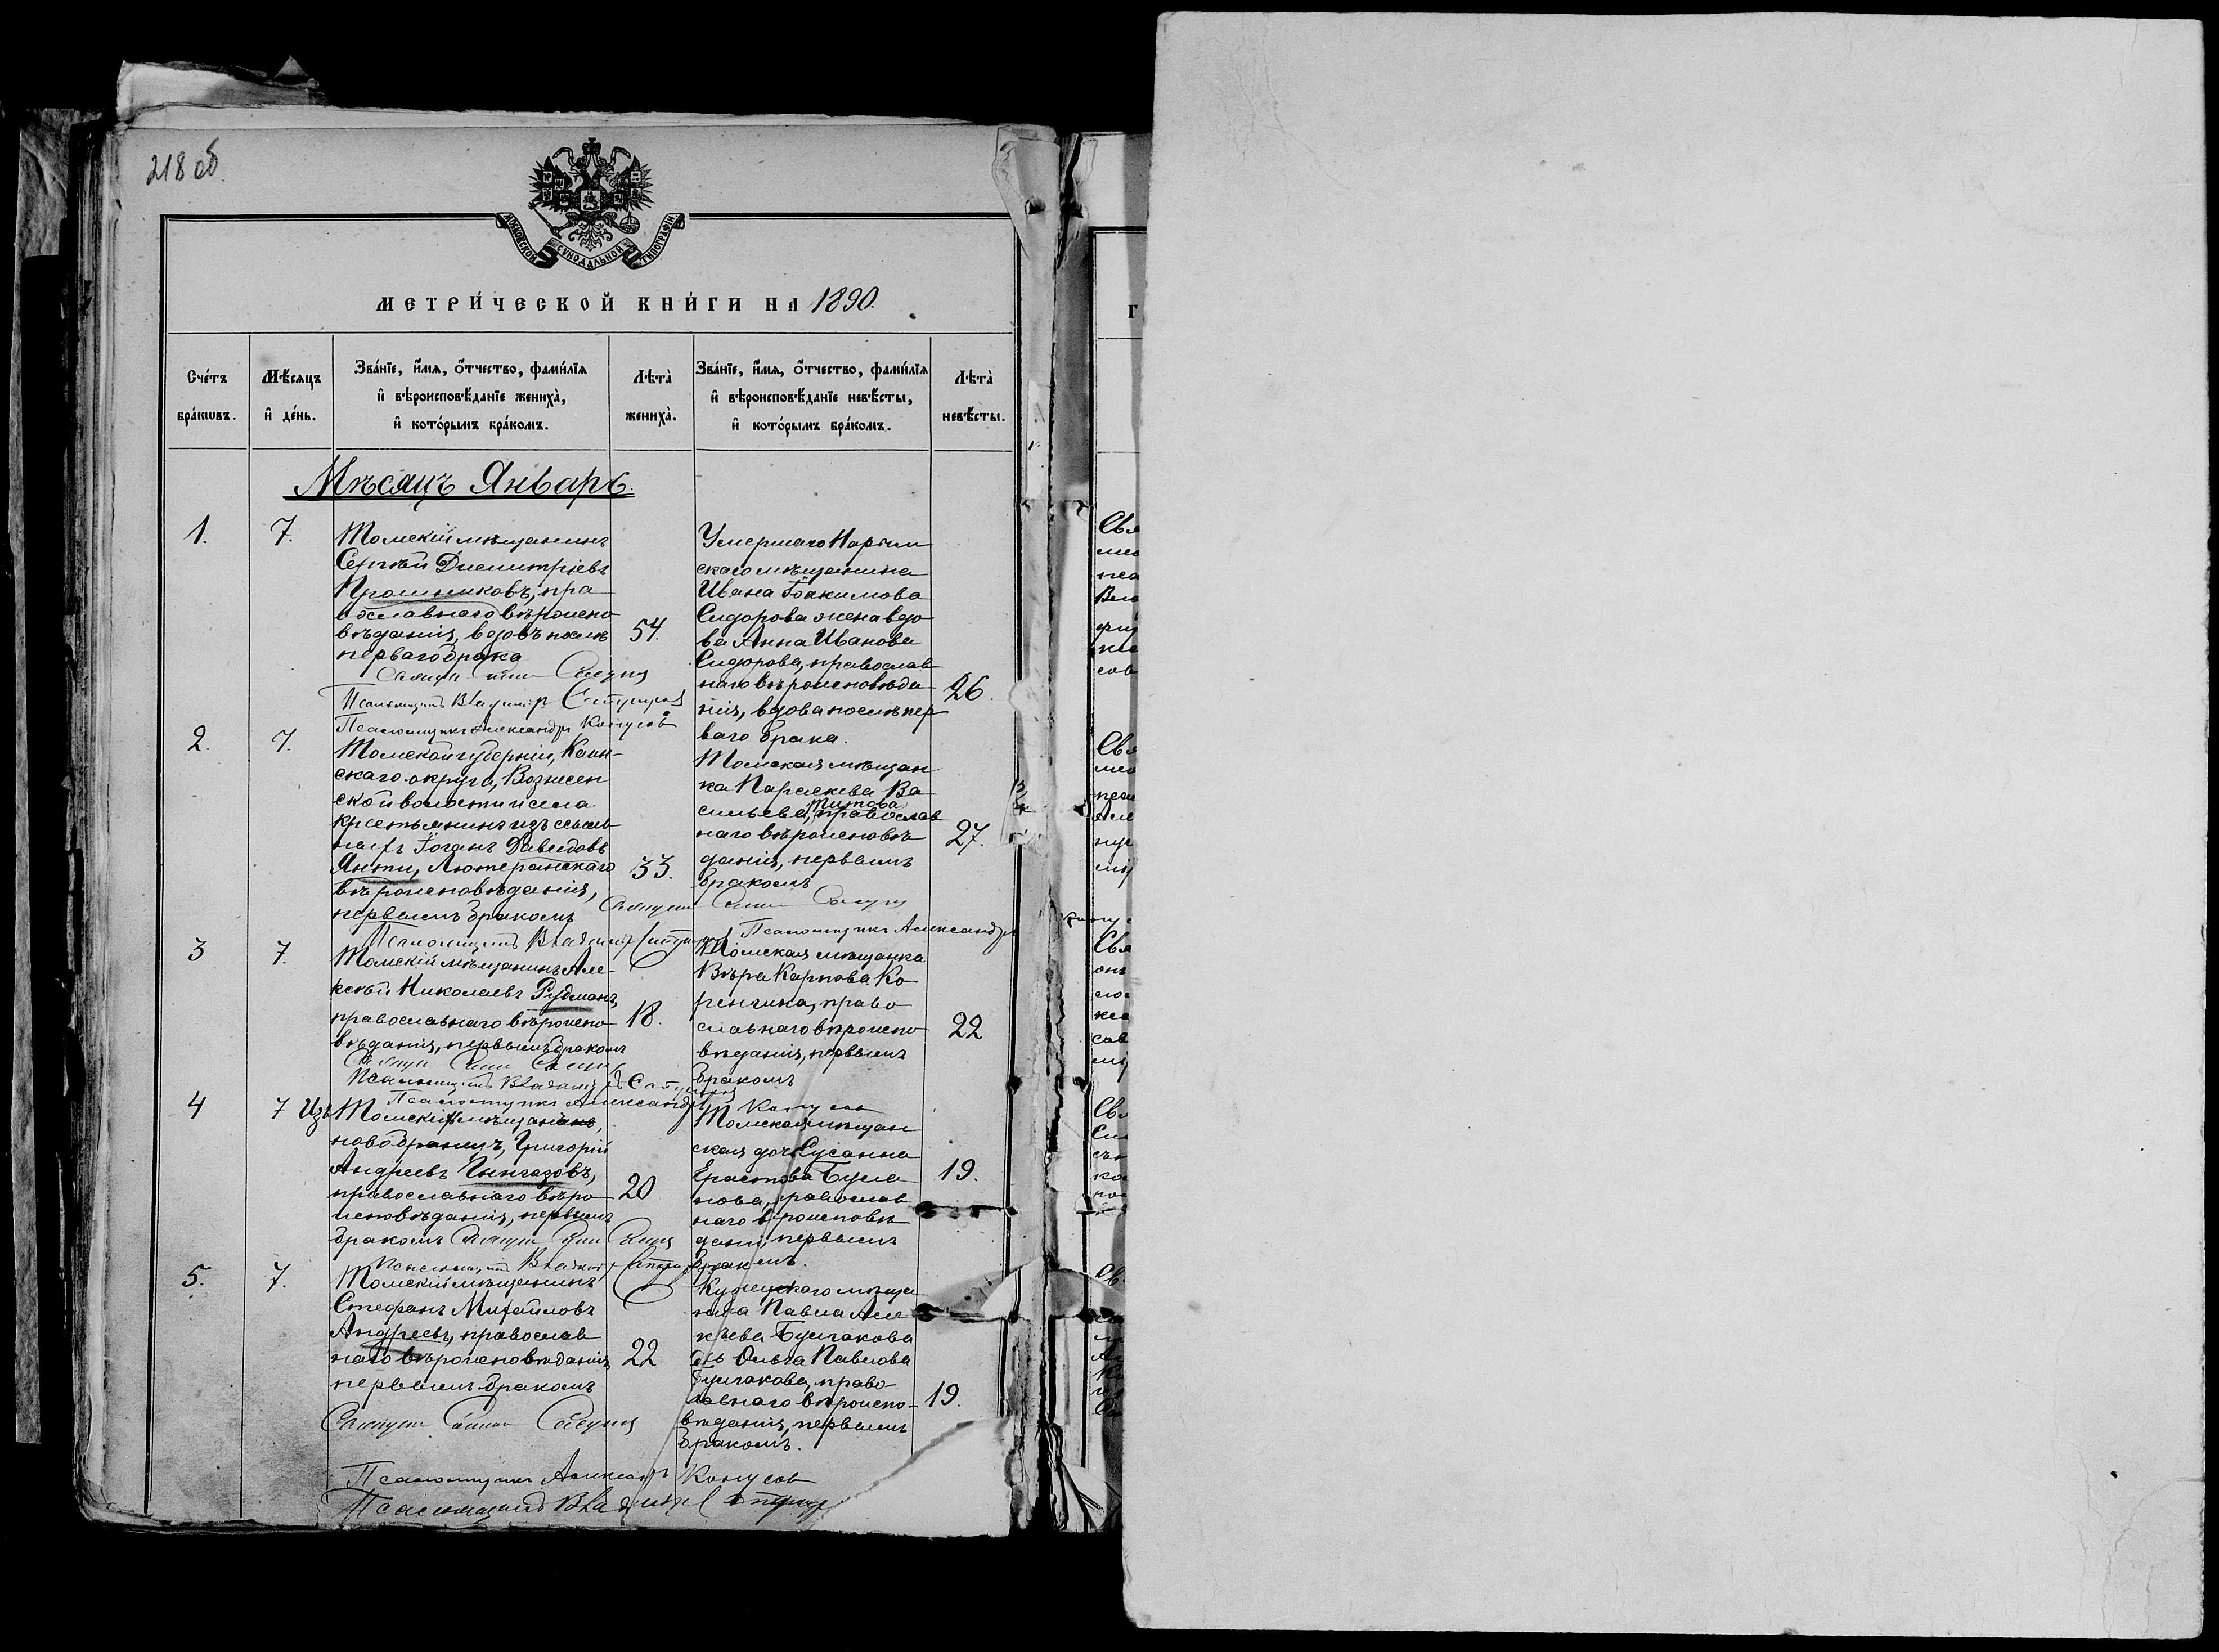 218 об
МОСКОВСКОЙ СѴНОДАЛЬНОЙ ТИПОГРАФІИ
МЕТРИ́ЧЕСКОЙ КНИ́ГИ НА 1890.
Сче́тъ
бра́кѡвъ.
Мѣ́сяцъ
и҆ де́нь.
Зва́нїе, и҆́мѧ, ѻ҆́тчество, фами́лїѧ
и҆ вѣроисповѣ́данїе жениха̀,
и҆ кото́рымъ бра́комъ.
Лѣта̀
жениха̀.
Зва́нїе, и҆́мѧ, ѻ҆́тчество, фами́лїѧ
и҆ вѣроисповѣ́данїе невѣ́сты,
и҆ кото́рымъ бра́комъ.
Лѣта̀
невѣ́сты.
Мѣсяцъ Январь.
1.
7.
Томскій мѣщанинъ
Сергѣй Димитріевъ
Прошниковъ, пра
вославнаго вѣроиспо
вѣданія, вдовъ послѣ
перваго брака
54.
Умершаго Нарым
скаго мѣщанина
Ивана Іоакимова
Сидорова жена вдо
ва Анна Иванова
Сидорова, православ
наго вѣроисповѣда
нія, вдова послѣ пер
ваго брака.
26.
Псаломщикъ Владимір
Псаломщикъ Александръ
2.
7.
Томской губерніи, Каин-
скаго округа, Вознесен
ской волости и села
крестьянинъ изъ ссыль
ныхъ Іоганъ Давидовъ
Янти, Лютеранскаго
вѣроисповѣданія,
первымъ бракомъ
33.
Томская мѣщан
ка Параскева Ва
сильева Титова, православ
наго вѣроисповѣ
данія, первымъ
бракомъ
27.
Псаломщикъ Владимір
Псаломщикъ Александръ
3
7.
Томскій мѣщанинъ Але-
ксѣй Николаевъ Рудманъ,
православнаго вѣроиспо
вѣданія, первымъ бракомъ
18.
Томская мѣщанка
Вѣра Карпова Ко
ренчина, право
славнаго вѣроиспо
вѣданія, первымъ
бракомъ
22
Псаломщикъ Владимір
Псаломщикъ Александръ
4
7
Изъ Томскихъ мѣщанъ,
новобранецъ, Григорій
Андреевъ Гынгазовъ,
православнаго вѣро
исповѣданія, первымъ
бракомъ
20
Томская мѣщан
ская дочь Сусанна
Ерастова Була
нова, православ
наго вѣроисповѣ
данія, первымъ
бракомъ.
19.
Псаломщикъ Владимір
5.
7.
Томскій мѣщанинъ
Стефанъ Михайловъ
Андреевъ, православ
наго вѣроисповѣданія
первымъ бракомъ
22
Кузнецкаго мѣща
нина Павла Але
ксѣева Булгакова
дочь Ольга Павлова
Булгакова, право
славнаго вѣроиспо-
вѣданія, первымъ
бракомъ.
19.
Псаломщикъ Александръ
Псаломщикъ Владимір